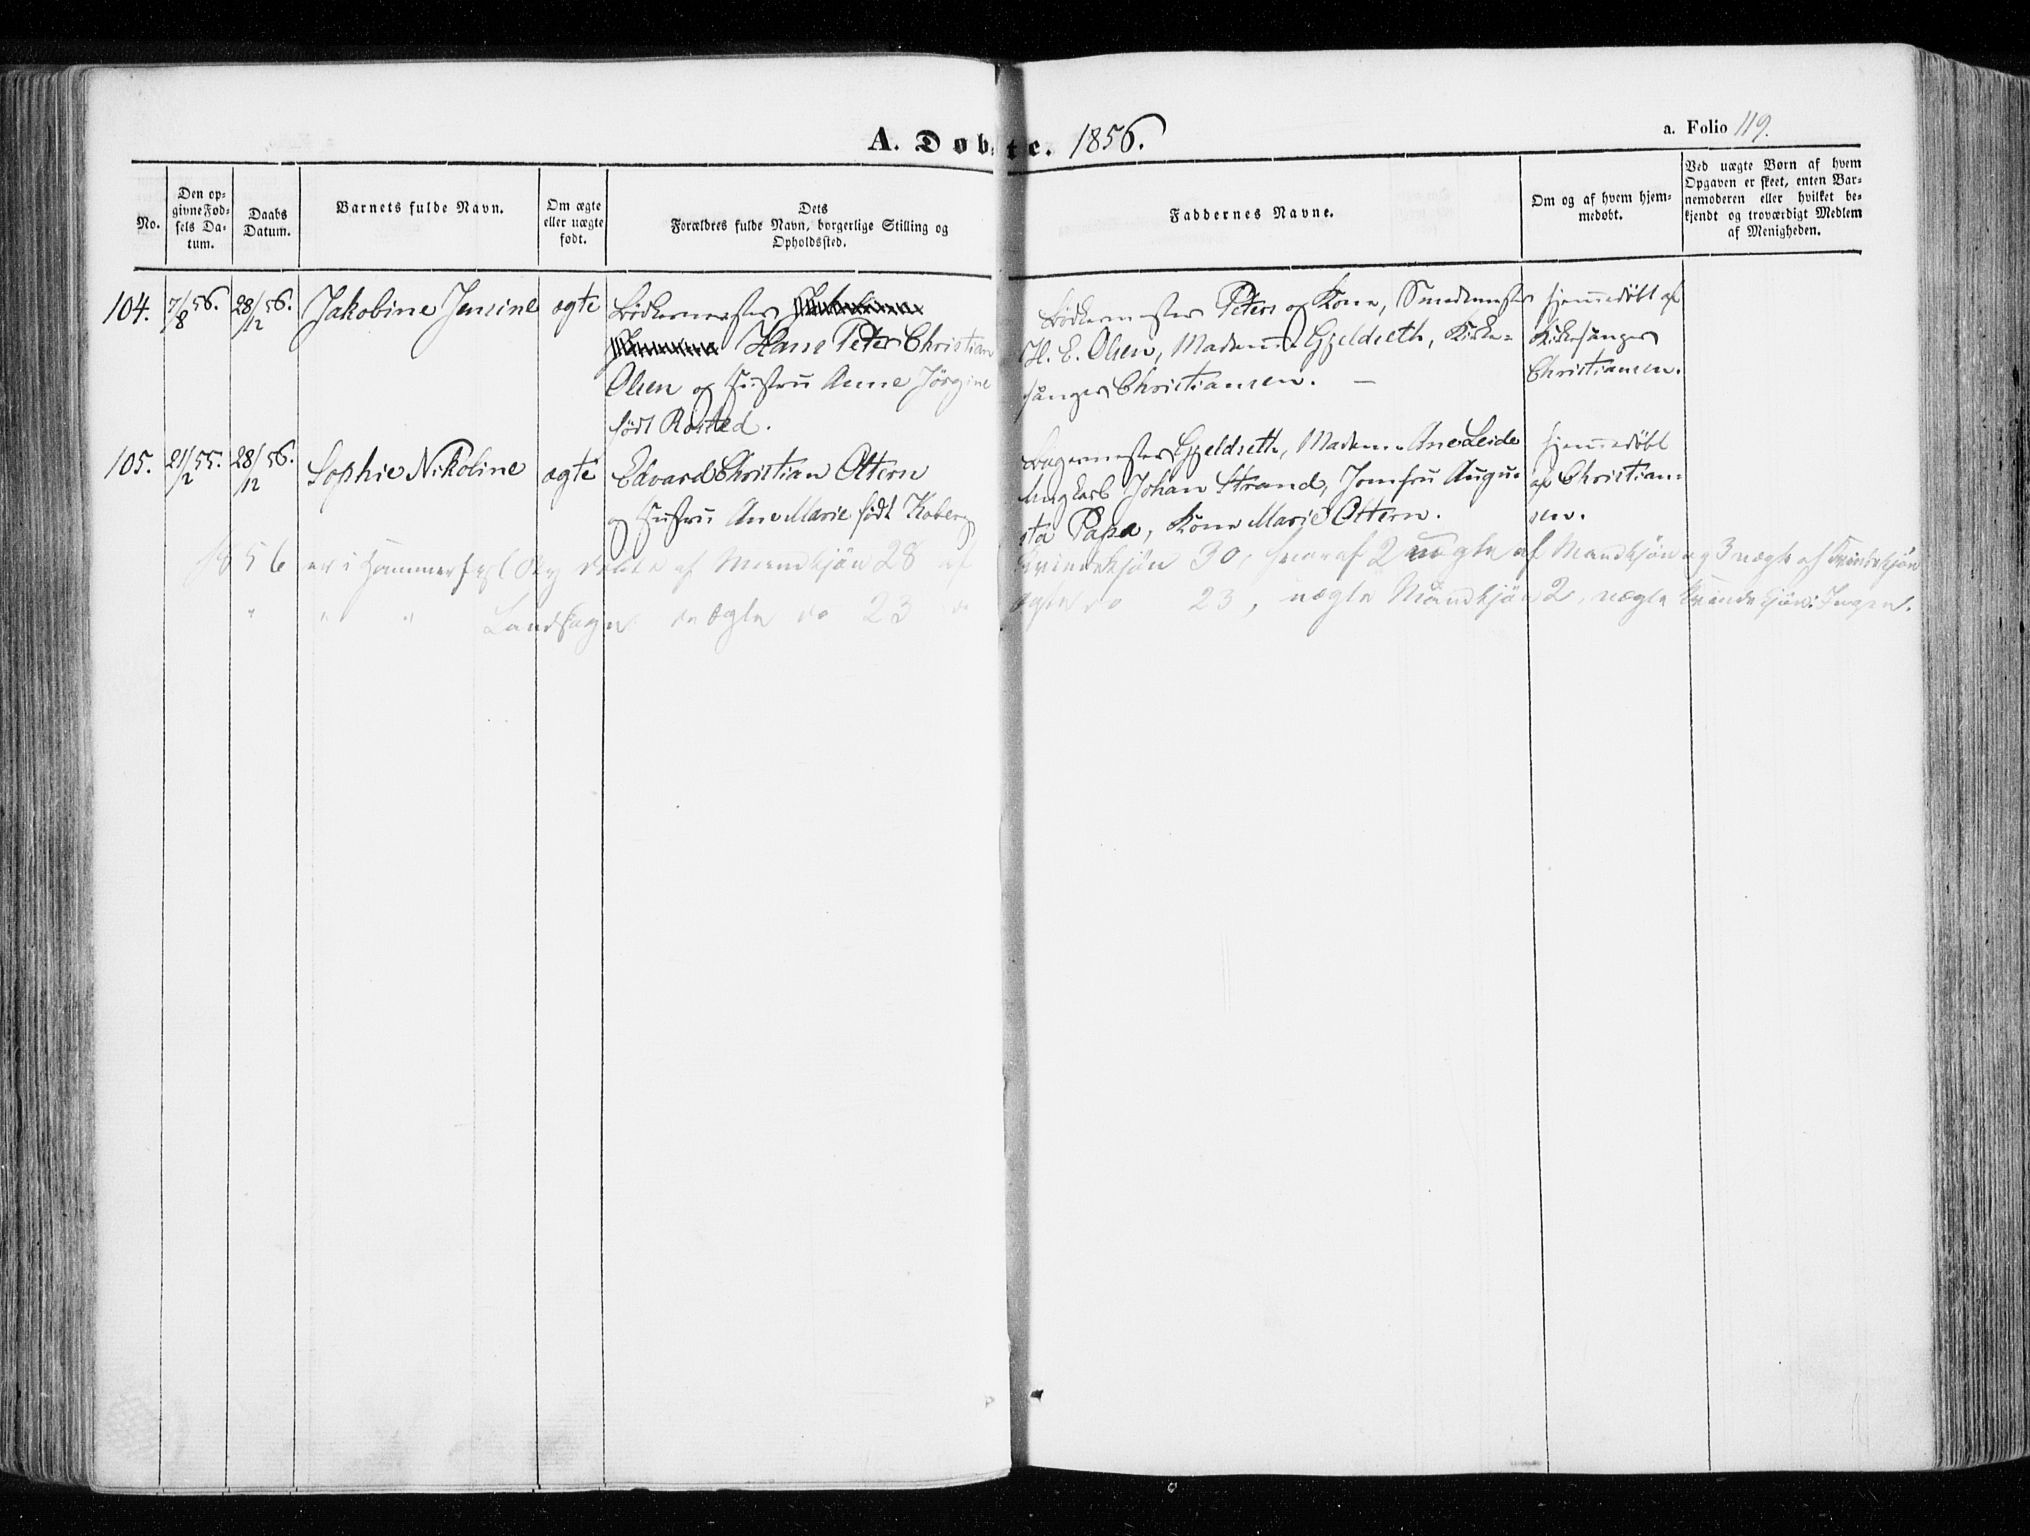 A. Døbte. 1856.
a. Folio 119.
No.
Den op-
givne Fød-
sels Da-
tum.
Daabs
Datum.
Barnets fulde Navn.
Om ægte
eller uægte
født.
Dets
Forældres fulde Navn, borgerlige Stilling og
Opholdssted.
Faddernes Navne.
Om og af hvem hjem-
medøbt.
Ved uægte Børn af hvem
Opgaven er skeet, enten Bar-
nemoderen eller hvilket be-
kjendt og troværdigt Medlem
af Menigheden.
104. 7/8 56. 28/12 56. Jakobine Jensine ægte
Bødkermester
Hans Peter Christian
Olsen og Hustru Anne Jörgine
født Rosted.
Bødkermester Peters og Kone, Smedemester
H. E. Olsen, Madame Gjeldseth, Kirke-
sanger Christiansen. —
hjemmedøbt af
Kirkesanger
Christiansen.
105. 21/12 55. 28/12 56. Sophie Nikoline ægte
Edvard Christian Ottern
og Hustru Ane Marie født Koberg
Bagermester Gjeldseth, Madame Ane Leide
Ungkarl Johan Strand, Jomfru Augu-
sta Papa, Kone Marie Ottern.
hjemmedøbt
af Christian-
sen.
1856 er i Hammerfest By døbte af Mandkjøn 28 af Qvindekjøn 30, hvoraf 2 uægte af Mandkjøn og 3 uægte af Qvindekjøn
" " " Landsogn do ægte do 23 do ægte do 23, uægte Mandkjøn 2, uægte Qvindekjøn: Ingen.